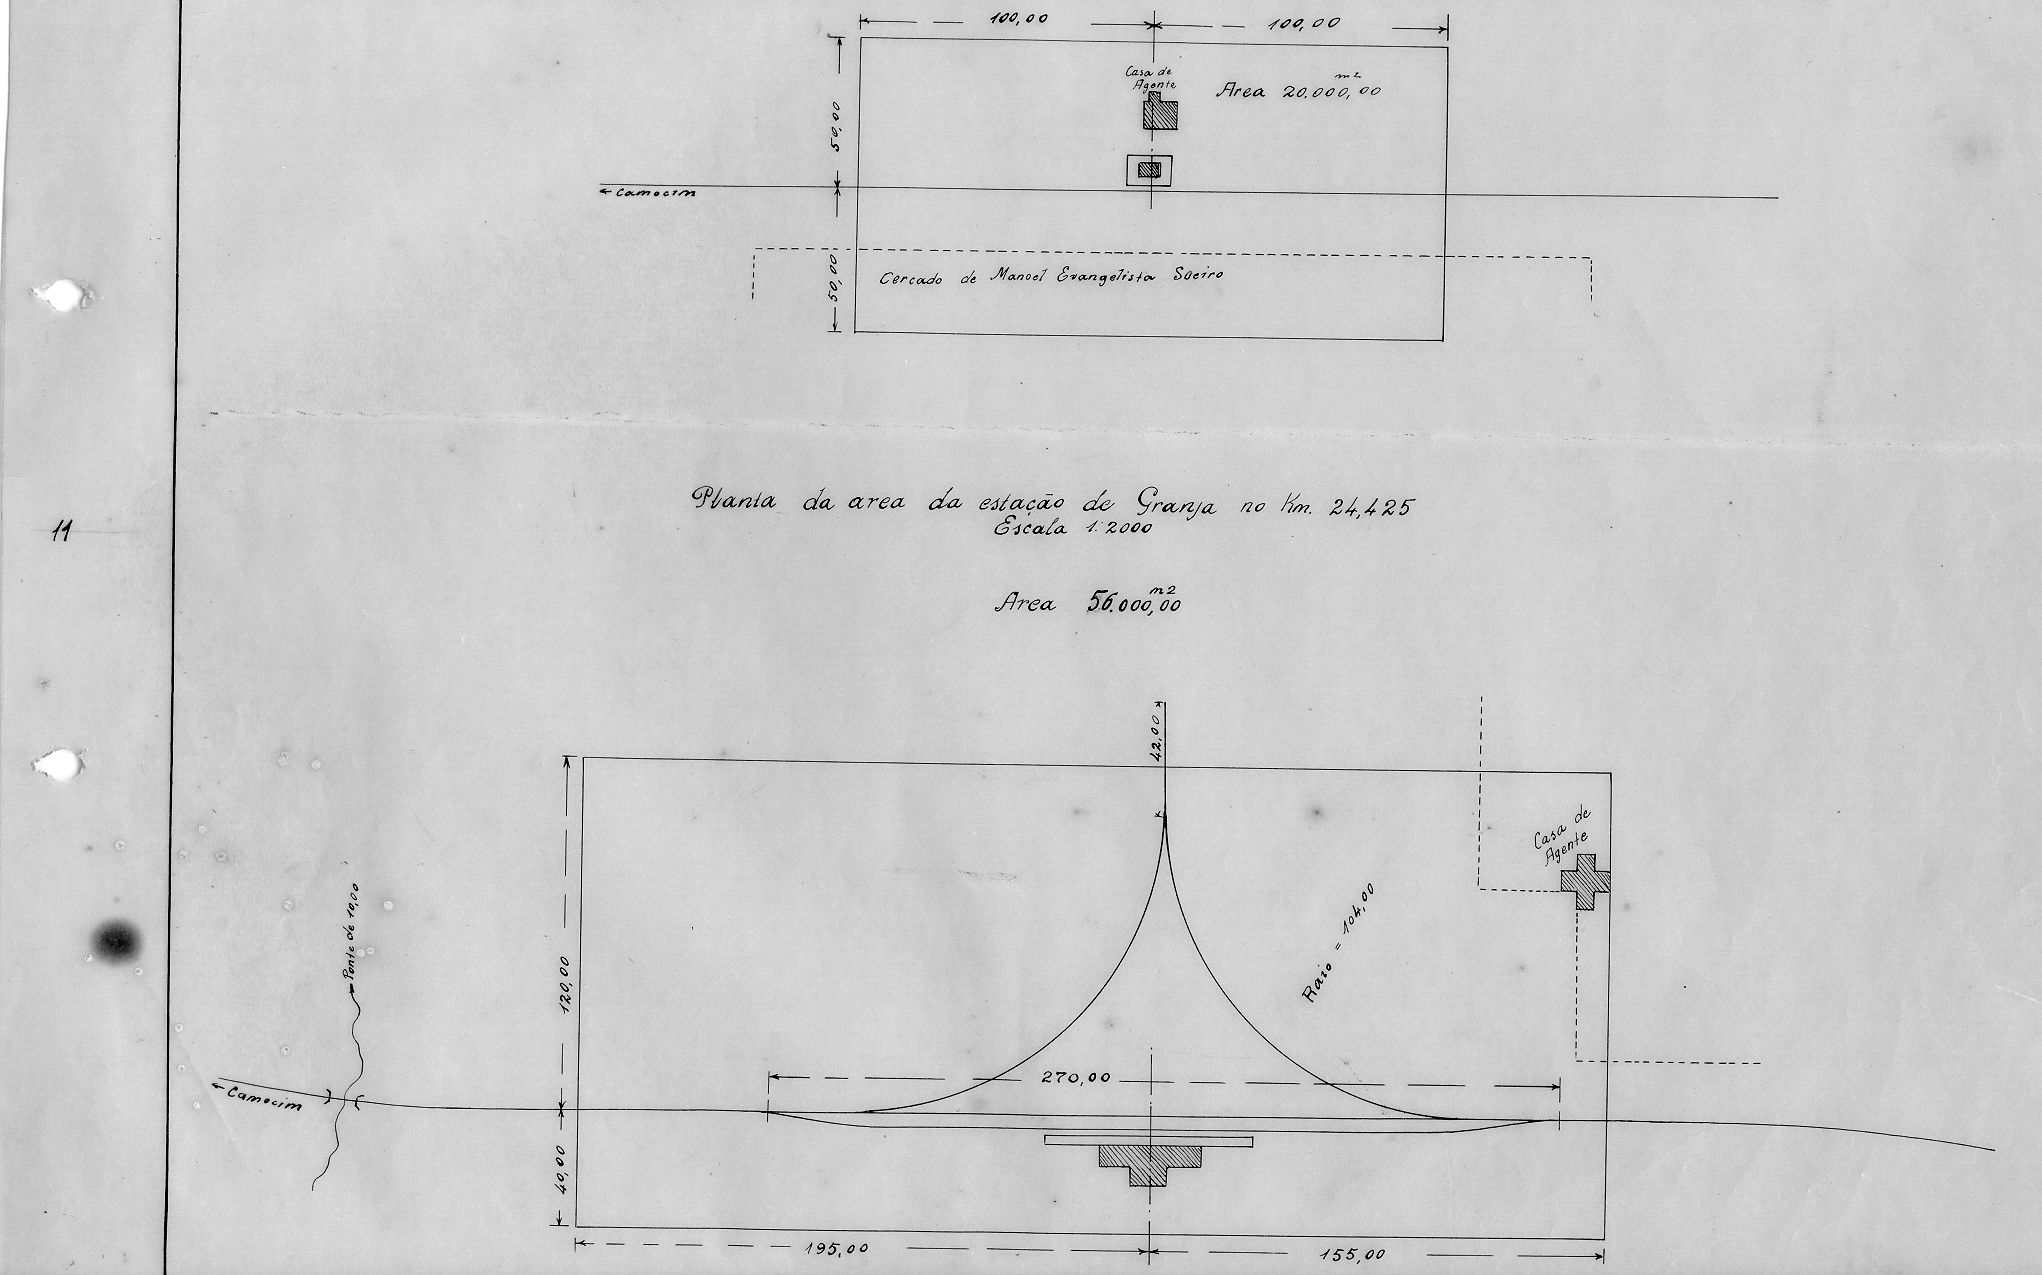 100,00
100,00
Casa de
Agente
Area 20.000,00 m2
50,00
← Camocim
50,00
Cercado de Manoel Evangelista Soeiro
11
Planta da area da estação de Granja no Km. 24,425
Escala 1:2000
Area 56.000,00 m2
42,00
Casa de
Agente
Raio = 104,00
Ponte de 10,00
120,00
270,00
← Camocim
40,00
195,00
155,00